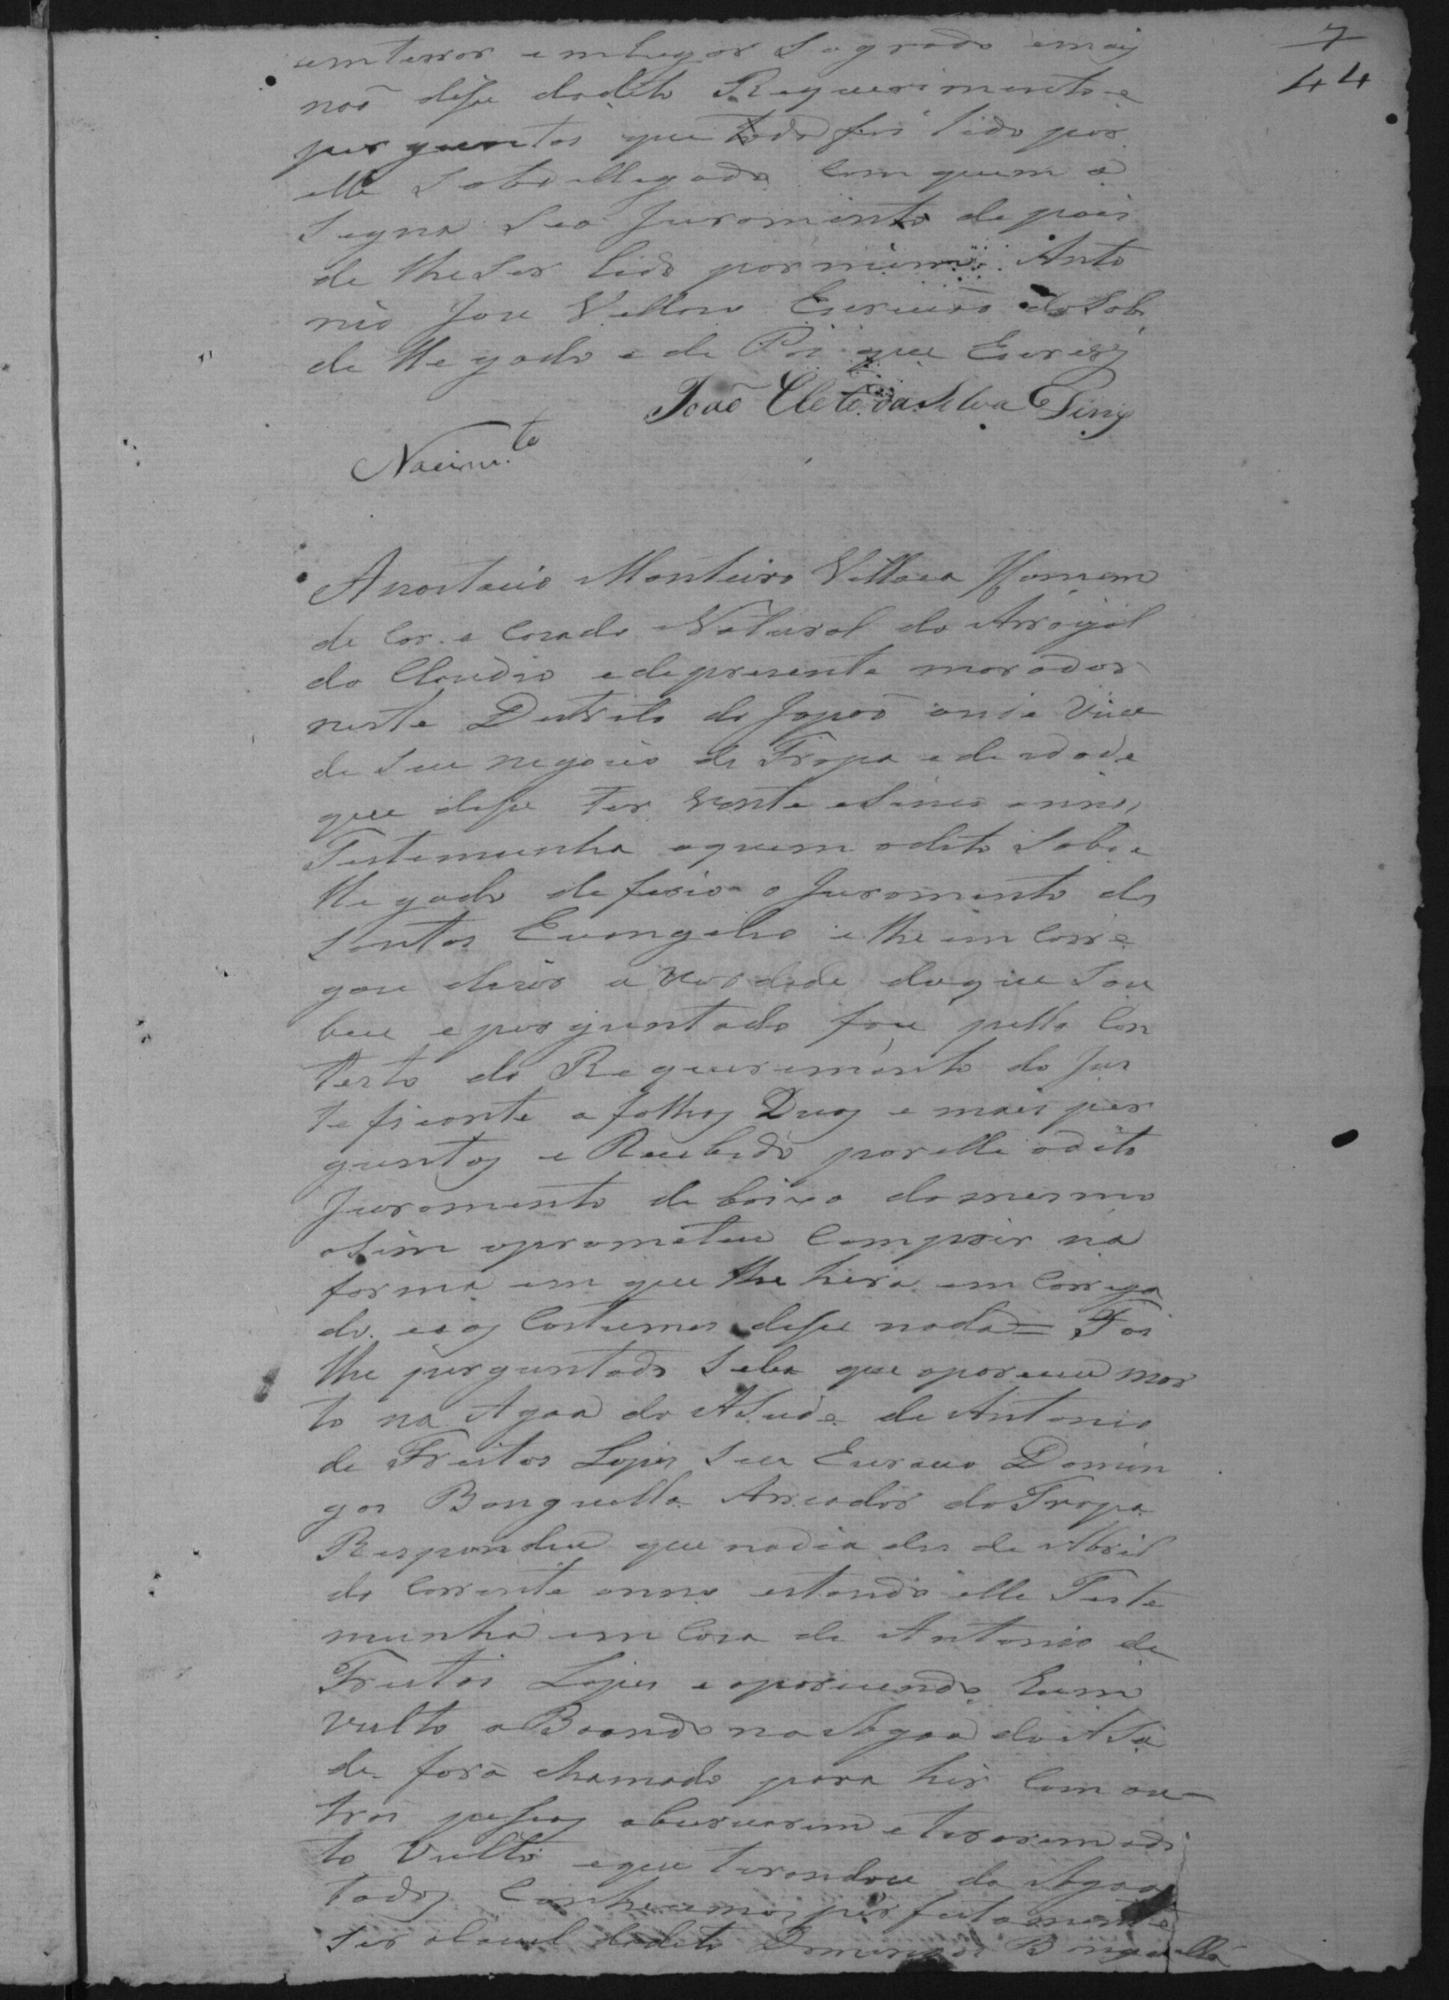 7
44
emterrar em lugar Sagrado emais
naõ disse dodito Requerimento e
perguntas que todo foi lido por
elle Sobdellegado Com quem a
Signa Seo Juramento depois
de lheser lido pormim Anto
nio Joze Vellozo Escrivaõ do Sob
dellegado e de Pas que Escrevy
Joaõ Cleto da Silva
Nacim.to
Anastacio Monteiro Villaca Homem
de Cor e Cazado Natural do Arayal
do Claudio edepresente morador
neste Destrito do Japaõ onde Vive
de Seu negocio de Tropa edeidade
que disse Ter Vente eSinco annos
Testemunha aquem odito Sobde
llegado deferio o Juramento dos
Santos Evangelho e lhe imcarre
gou dicer a verdade doque Sou
bece eperguntado fou pello Con
testo do Requerimento do Jus
teficante a folhas Duas e mais per
guntas e Recebido porelle odito
Juramento debaixo domesmo
aSim oprometeu Comprir na
forma em que lhe hera emcarrega
do. eaos Costumes disse nada = Foi
lhe perguntado Sebe que apareceu mor
to na Agoa do ASude de Antonio
de Freitas Lopes Seu Escravo Domin
gos Benguella Arreador da Tropa
Respondeu que nodia des de Abril
do Corrente anno estando elle Teste
munha em Caza de Antonio de
Freitas Lopes e aparecendo hum
vulto a Boando na Agoa do ASu
de fora chamado para hir Com ou
tros pessoas abservarem e tirarem odi
to Vulto eque tirandoce da Agoa
todos Conhecemos perfeitamente
Ser o dodito Domingos Benguella